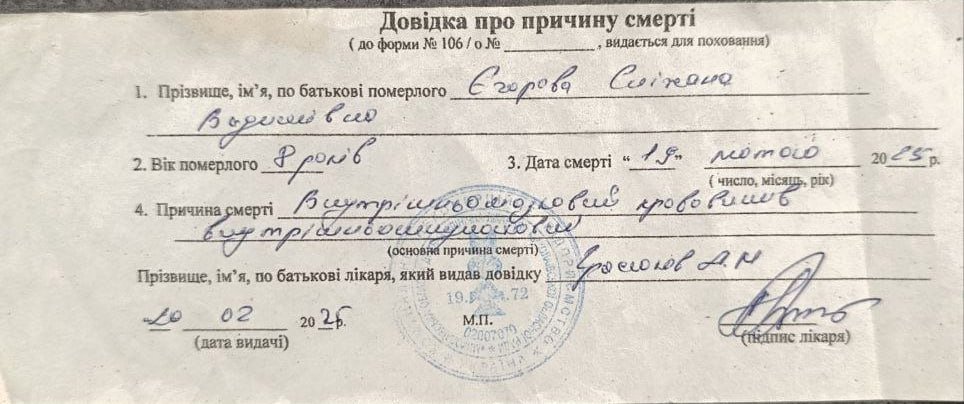 Довідка про причину смерті
( до форми № 106 / о № __________ , видається для поховання)
1. Прізвище, ім'я, по батькові померлого Єгорова Сніжана
Вадимівна
2. Вік померлого 8 років 3. Дата смерті “ 19 ” лютого 2025 р.
( число, місяць, рік)
4. Причина смерті Внутрішньомозковий крововилив
внутрішньошлуночковий
(основна причина смерті)
Прізвище, ім'я, по батькові лікаря, який видав довідку А.М
20 02 2025р.
19. .72
М.П.
(дата видачі)
(підпис лікаря)
02007070
УКРАЇНА